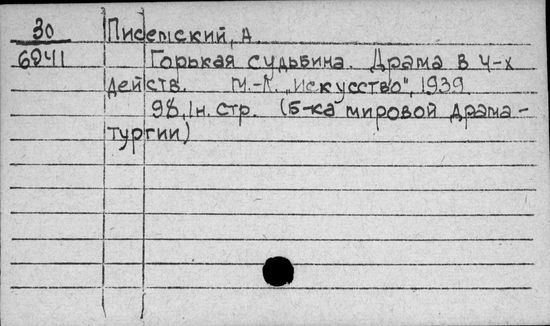 30 Писемский, А
6941 Горькая судьбина. Драма в 4-х
действ. М.-Л. „Искусство", 1939
98, 1н. стр. (Б-ка мировой драма-
тургии)